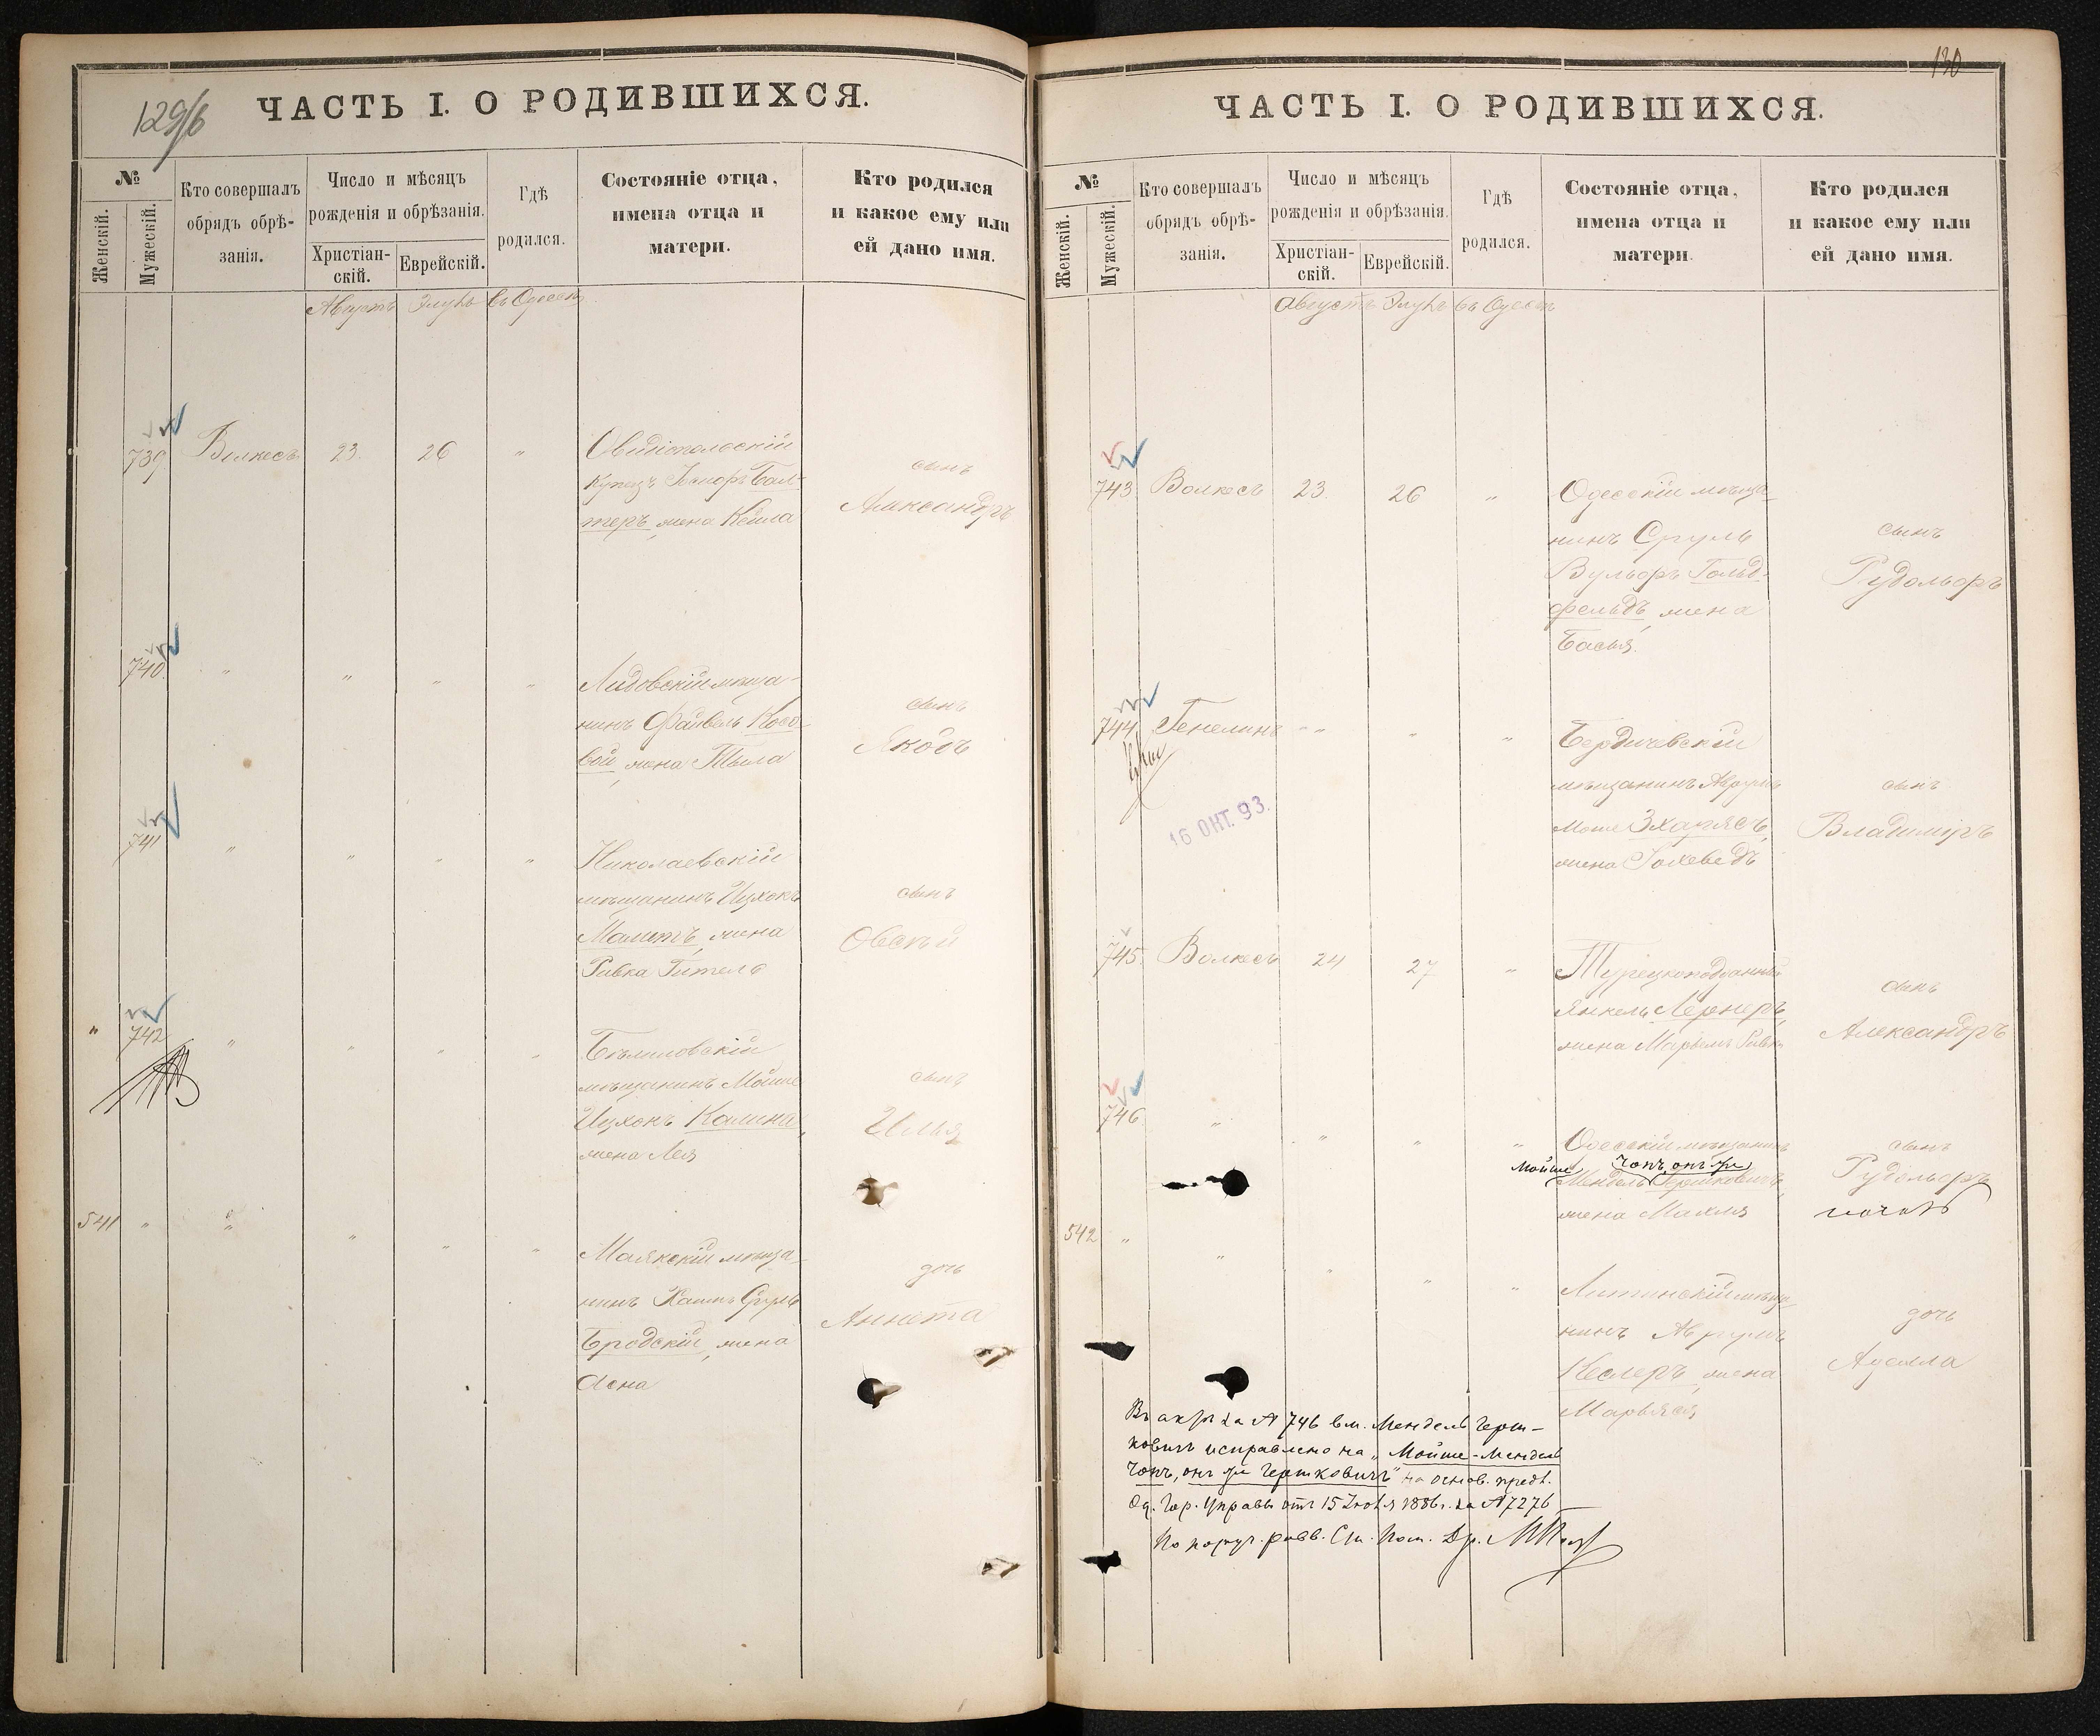 129/б
ЧАСТЬ I. О РОДИВШИХСЯ.
№
Женскій.
Мужескій.
Кто совершалъ
обрядъ обрѣ-
занія.
Число и мѣсяцъ
рожденія и обрѣзанія.
Христіан-
скій.
Еврейскій.
Гдѣ
родился.
Состояніе отца,
имена отца и
матери.
Кто родился
и какое ему или
ей дано имя.
Августъ Элулъ въ Одессѣ
739 Волкесъ 23 26 "
Овидіопольскій
купецъ Іосифъ Бал-
теръ, жена Кейла
сынъ
Александръ
740 " " " "
Лидовскій мѣща-
нинъ Файвель Косо-
вой, жена Тыла
сынъ
Якобъ
741 " " " "
Николаевскій
мѣщанинъ Ицхокъ
Малитъ, жена
Ривка Гитель
сынъ
Овсѣй
" 742 " " " "
мѣщанинъ Мойше
Ицхокъ Калина,
жена Лея
сынъ
Илья
541 " " " " "
Маякскій мѣща-
нинъ Хаимъ Сруль
Бродскій, жена
Асна
дочь
Аннета
130
ЧАСТЬ I. О РОДИВШИХСЯ.
№
Женскій.
Мужескій.
Кто совершалъ
обрядъ обрѣ-
занія.
Число и мѣсяцъ
рожденія и обрѣзанія.
Христіан-
скій.
Еврейскій.
Гдѣ
родился.
Состояніе отца,
имена отца и
матери.
Кто родился
и какое ему или
ей дано имя.
Августъ Элулъ въ Одессѣ
743 Волкесъ 23 26 "
Одесскій мѣща-
нинъ Сруль
Вульфъ Гольд-
фельдъ, жена
Бася.
сынъ
Рудольфъ
744 Генелинъ " " " "
16 ОКТ. 93.
Бердичевскій
мѣщанинъ Аврумъ
Моше Зхарясъ,
жена Іохеведъ
сынъ
Владиміръ
745 Волкесъ 24 27 "
Турецкоподданный
Янкель Лернеръ,
жена Марьемъ Ривка
сынъ
Александръ
746 " " " "
Одесскій мѣщанинъ
Мойше Чопъ, онъ же
Мендель Гершковичъ,
жена Махля
сынъ
Рудольфъ
542 " " " " "
Литинскій мѣща-
нинъ Аврумъ
Кеслеръ, жена
Марьяся
дочь
Аделла
Въ актѣ за № 746 вм. Мендель Герш-
ковичъ исправлено на „Мойше-Мендель
Чопъ, онъ же Гершковичъ" на основ. предп.
Од. Гор. Управы отъ 15 Іюля 1886 г. за № 7276
По поруч. равв. Ст. Пом. Др.